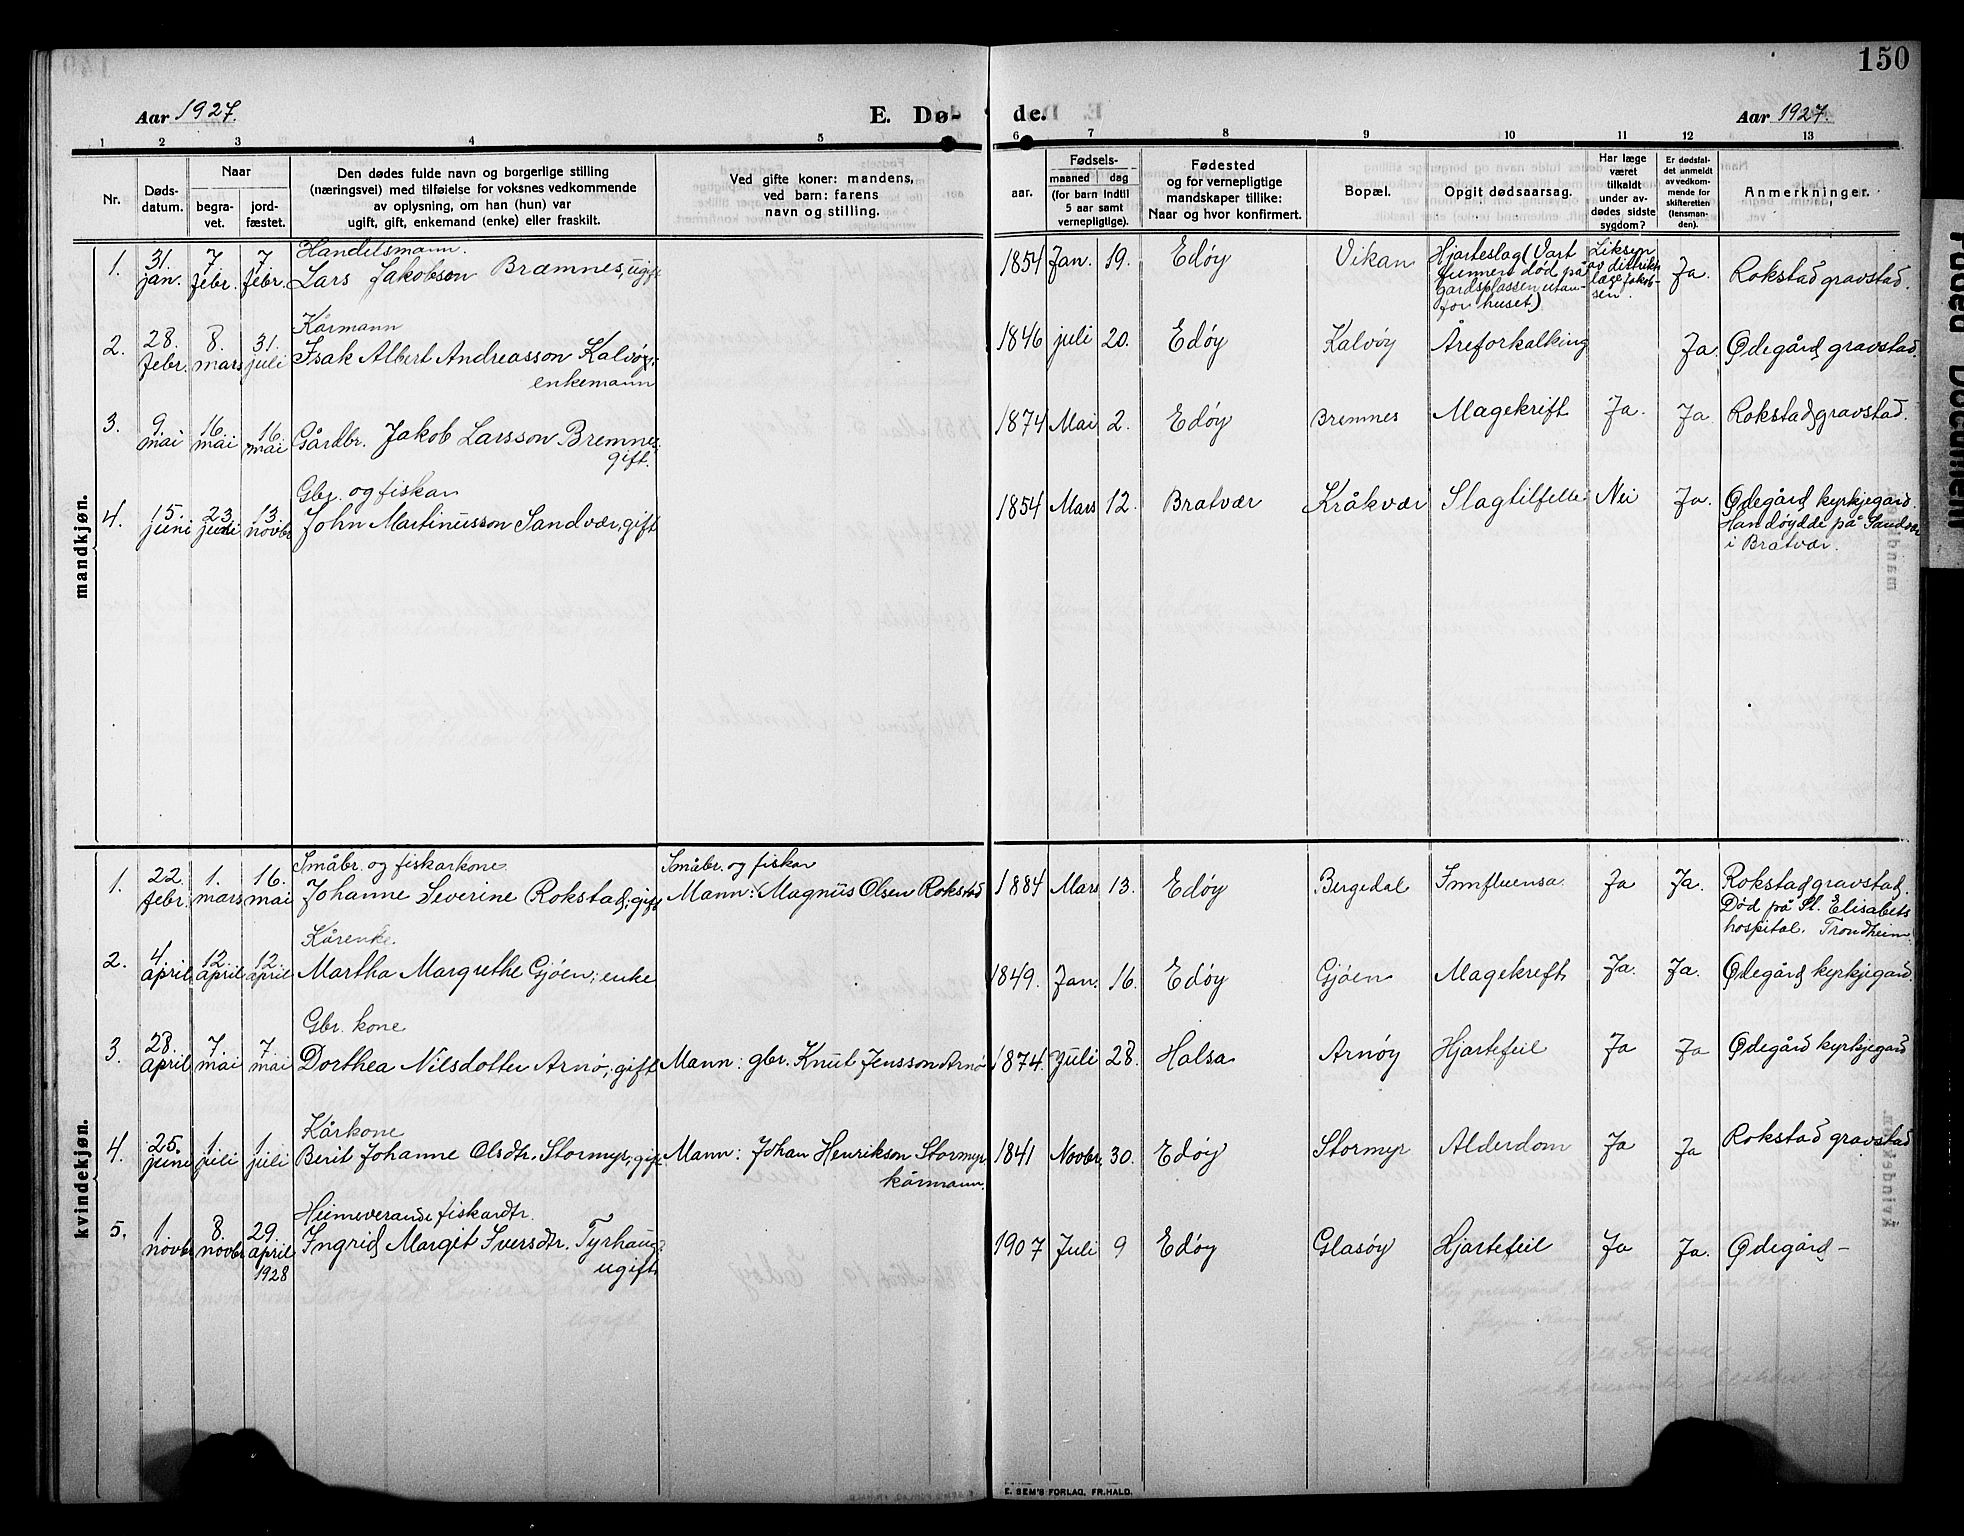 150
Aar 1927. E. Dø- de. Aar 1927.
1 2 3 4 5 6 7 8 9 10 11 12 13
Nr.
Døds-
datum.
Naar
begra-
vet.
jord-
fæstet.
Den dødes fulde navn og borgerlige stilling
(næringsvei) med tilføielse for voksnes vedkommende
av oplysning, om han (hun) var
ugift, gift, enkemand (enke) eller fraskilt.
Ved gifte koner: mandens,
ved barn: farens
navn og stilling.
Fødsels-
aar.
maaned dag
(for barn indtil
5 aar samt
vernepligtige).
Fødested
og for vernepligtige
mandskaper tillike:
Naar og hvor konfirmert.
Bopæl.
Opgit dødsaarsag.
Har læge
været
tilkaldt
under av-
dødes sidste
sygdom?
Er dødsfal-
det anmeldt
av vedkom-
mende for
skifteretten
(lensman-
den).
Anmerkninger.
mandkjøn.
1. 31. jan. 7 febr. 7 febr.
Handelsmann.
Lars Jakobson Bremnes, ugift
1854 Jan. 19. Edøy Vikan
Hjarteslag (Vart
funnen død på
gardsplassen utan-
for huset)
Liksyn
av distrikts
læge Jakob-
sen.
Ja. Rokstad gravstad.
2. 28. febr. 8. mars 31. juli
Kårmann
Isak Albert Andreasson Kalvøy;
enkemann
1846 juli 20. Edøy Kalvøy Åreforkalking Ja. Ødegård gravstad.
3. 9 mai 16 mai 16 mai
Gårdbr. Jakob Larsson Bremnes;
gift.
1874 Mai 2. Edøy Bremnes Magekreft Ja. Ja Rokstad gravstad.
4. 15. juni 23. juni 13. novbr
Gbr. og fiskar
John Martinusson Sandvær, gift
1854 Mars 12. Bratvær Kråkvær Slagtilfelle Nei Ja.
Ødegård kyrkjegard.
Han døydde på Sandvær
i Bratvær.
kvindekjøn.
1. 22. febr. 1. mars 16. mai
Småbr. og fiskarkone
Johanne Severine Rokstad; gift
Småbr. og fiskar
Mann: Magnus Olsen Rokstad
1884 Mars 13. Edøy Bergdal Innfluensa Ja Ja.
Rokstad gravstad.
Død på St. Elisabets
hospital, Trondheim.
2. 4 april 12. april 12. april
Kårenke.
Martha Margrethe Gjøen; enke
1849. Jan. 16. Edøy Gjøen Magekreft Ja. Ja. Ødegård kyrkjegard.
3. 28. april 7 mai 7 mai
Gbr. kone
Dorthea Nilsdotter Arnø; gift
Mann: gbr. Knut Jensson Arnø
1874. Juli 28. Halsa Arnøy Hjartefeil Ja Ja Ødegård kyrkjegard
4. 25. juni 1. juli 1 juli
Kårkone
Berit Johanne Olsdtr. Stormyr, gift
Mann: Johan Henrikson Stormyr
kårmann.
1841 Novbr. 30. Edøy Stormyr Alderdom Ja Ja Rokstad gravstad
5. 1 novbr 8. novbr 29. april
1928
Heimeverande fiskardtr.
Ingrid Margit Iversdtr. Tyrhaug;
ugift
1907 Juli 9 Edøy Glasøy Hjartefeil Ja Ja. Ødegård —
E. SEM'S FORLAG, FR.HALD.
Faded Document